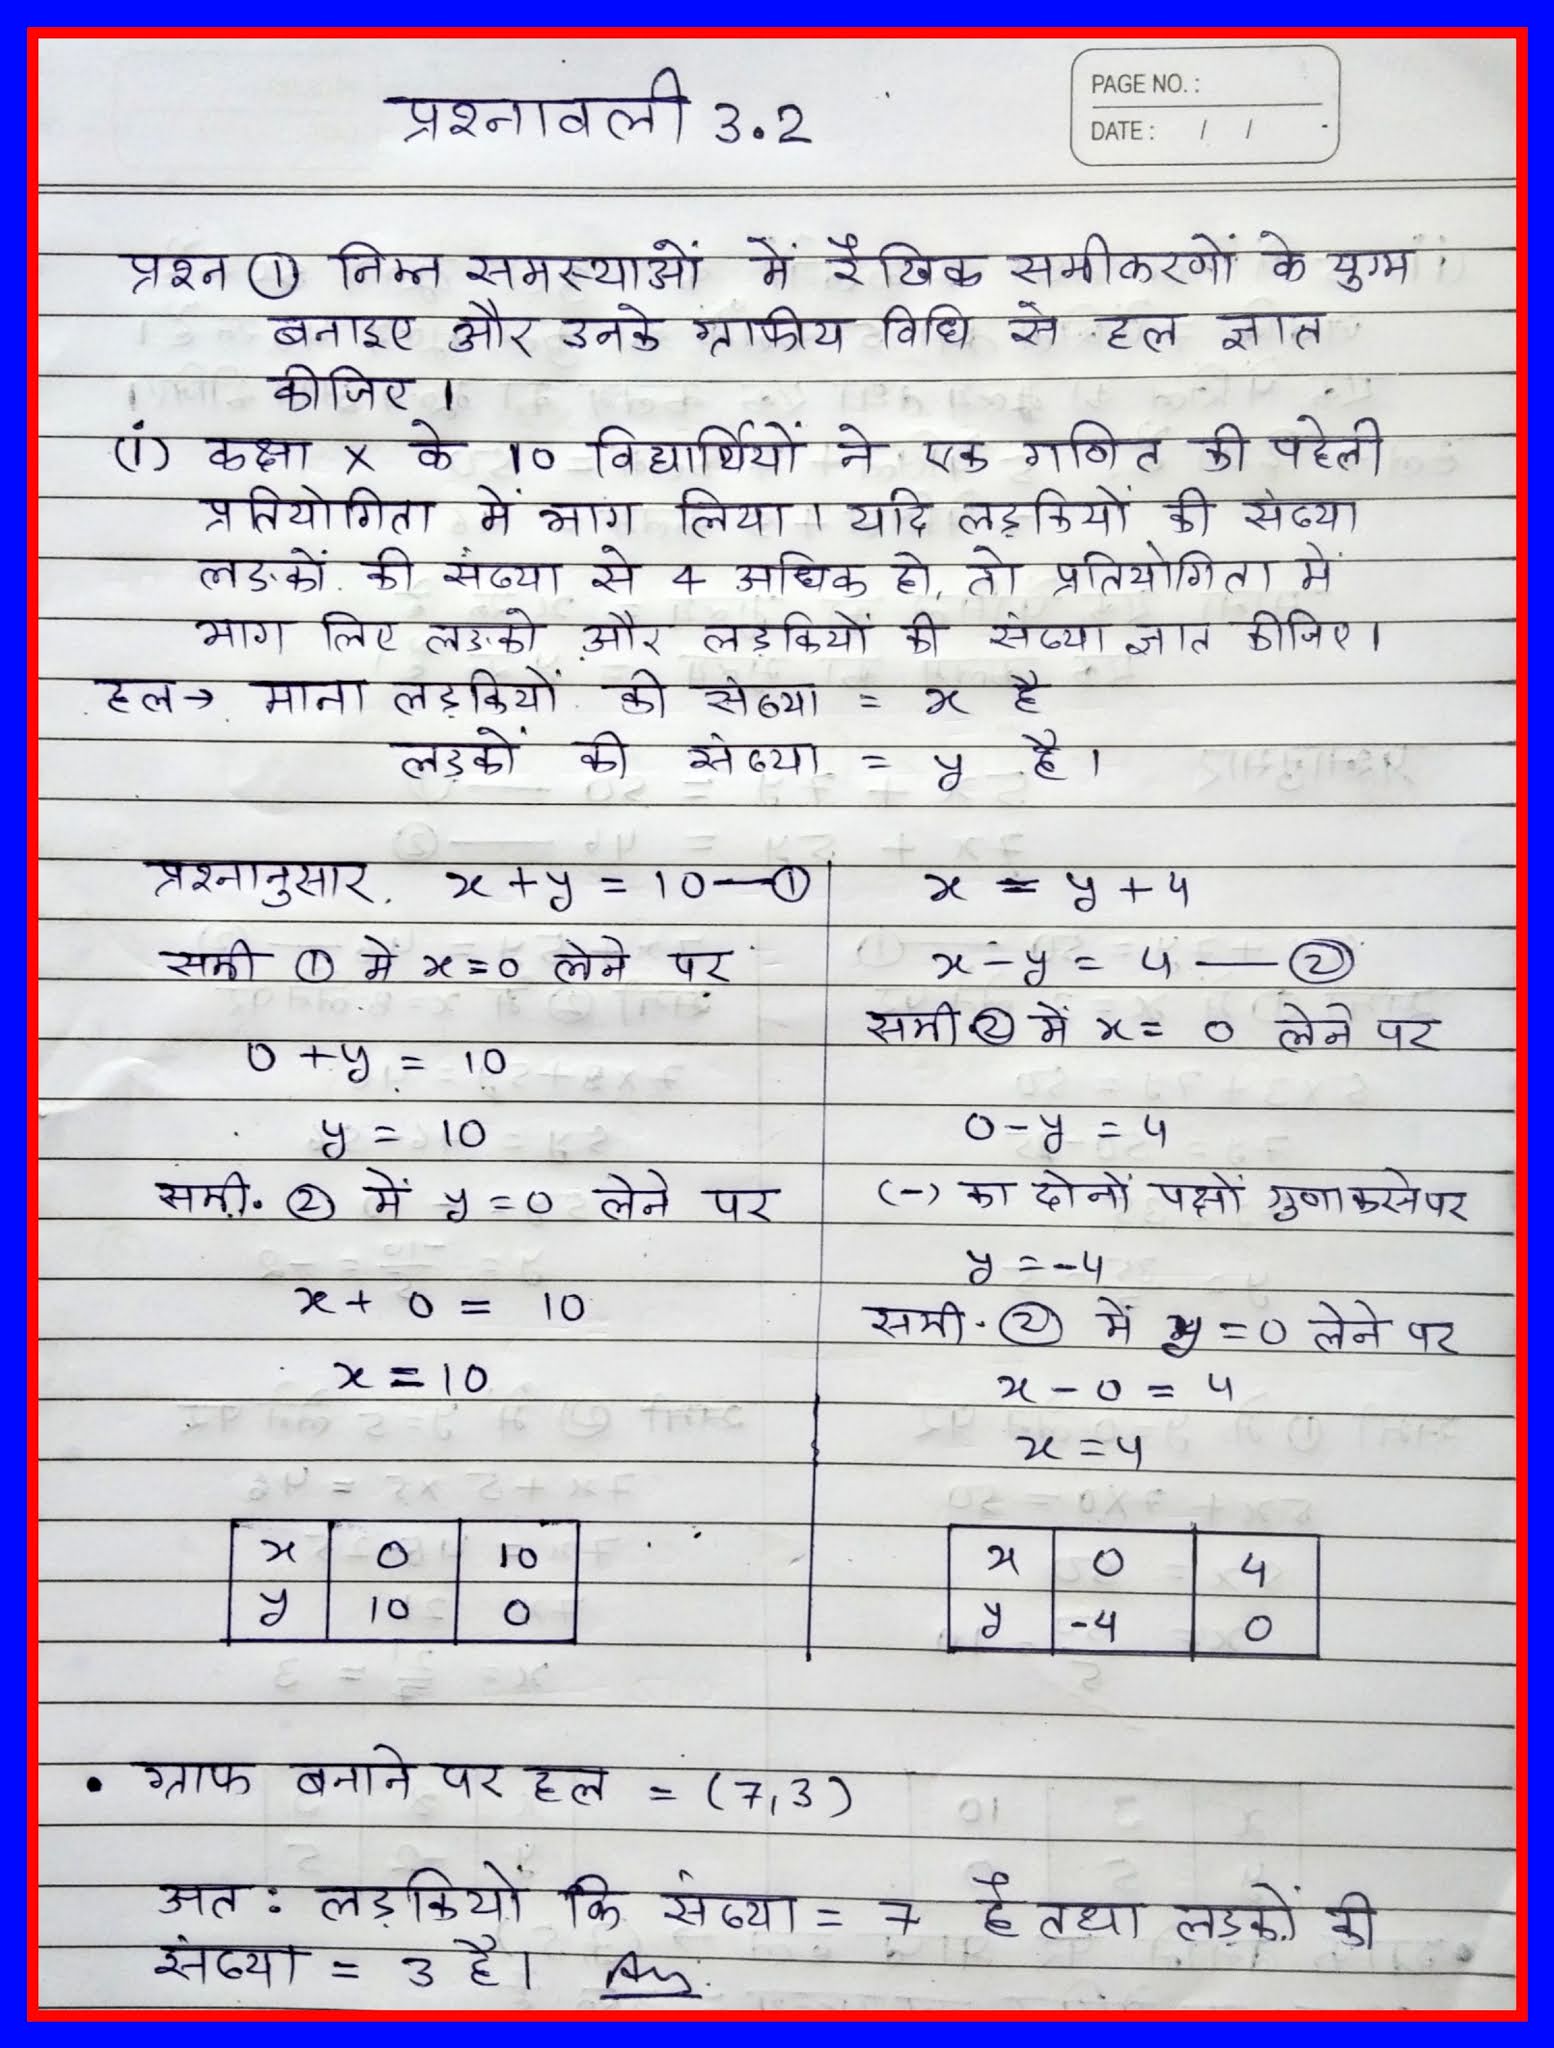 प्रश्नावली 3.2
PAGE NO. :
DATE : / /
प्रश्न ① निम्न समस्याओं में रैखिक समीकरणों के युग्म
बनाइए और उनके ग्राफीय विधि से हल ज्ञात
कीजिए।
(i) कक्षा X के 10 विद्यार्थियों ने एक गणित की पहेली
प्रतियोगिता में भाग लिया। यदि लड़कियों की संख्या
लडकों की संख्या से 4 अधिक हो, तो प्रतियोगिता में
भाग लिए लडको और लड़कियों की संख्या ज्ञात कीजिए।
हल→ माना लड़कियों की संख्या = x है
लड़कों की संख्या = y है।
प्रश्नानुसार, x + y = 10 — ①
समी ① में x = 0 लेने पर
0 + y = 10
y = 10
समी. ② में y = 0 लेने पर
x + 0 = 10
x = 10
x 0 10
y 10 0
x = y + 4
x - y = 4 — ②
समी. ② में x = 0 लेने पर
0 - y = 4
(-) का दोनों पक्षों गुणा करने पर
y = -4
समी. ② में y = 0 लेने पर
x - 0 = 4
x = 4
x 0 4
y -4 0
• ग्राफ बनाने पर हल = (7,3)
अत: लड़कियों कि संख्या = 7 है तथा लड़कों की
संख्या = 3 है। Ans.